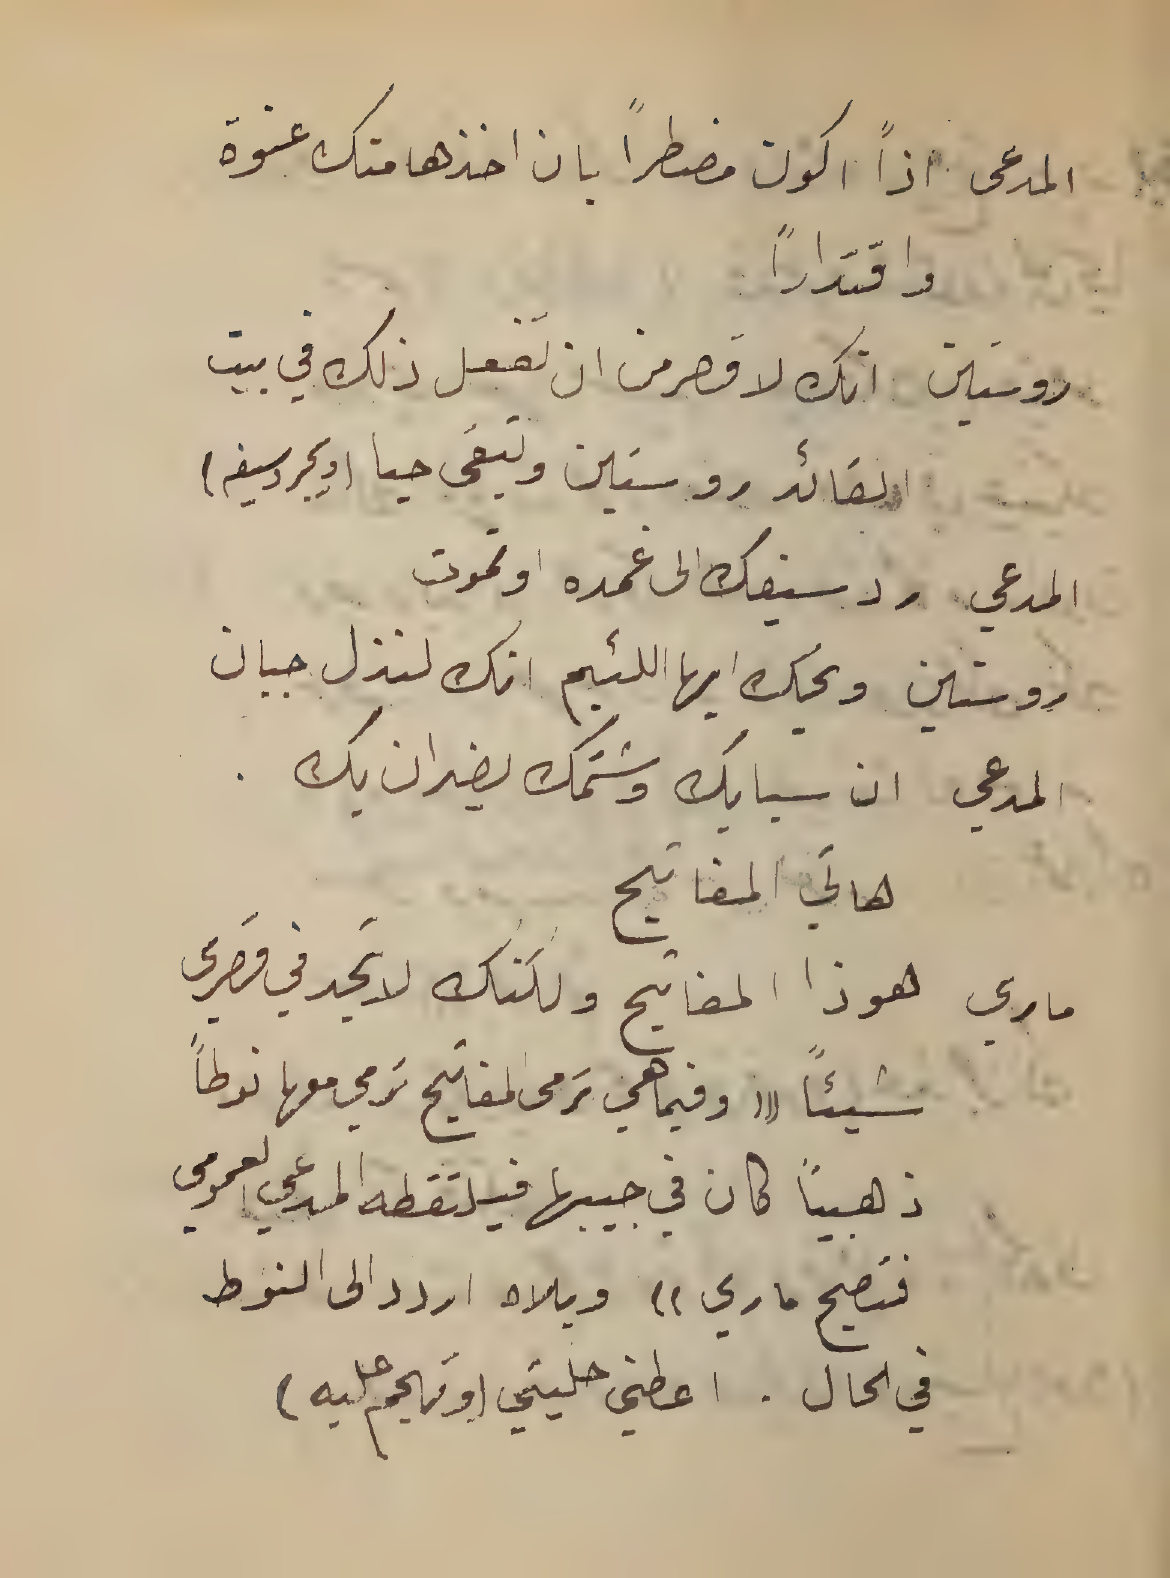 المدعى اذاً اكون مضطراً بان اخذها منك عنوة
واقتداراً
روستين انك لاقصر من ان تفعل ذلك في بيت
القائد روستين وتبقى حيا (ويجرد سيفه)
المدعي رد سيفك الى غمده او تموت
روستين ويحك ايها اللئيم انك لنذل جبان
المدعي ان سبابك وشتمك يضران بك .
هاتي المفاتيح
ماري هوذا المفاتيح ولكنك لا تجد في قصري
شيئاً (( وفيما هي ترمى المفاتيح ترمي معها نوطاً
ذهبياً كان في جيبها فيلتقطه المدعي العمومي
فتصيح ماري )) ويلاه اردد الى النوط
في الحال . اعطني حليتي (وتهجم عليه)